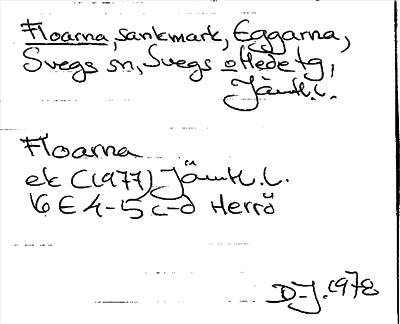 Floarna, sankmark, Eggarna,
Svegs sn, Svegs o Hede tg,
Jämtl. l.
Floarna
ek C (1977) Jämtl. l.
16 E 4-5 c-d Herrö
D-J. 1978